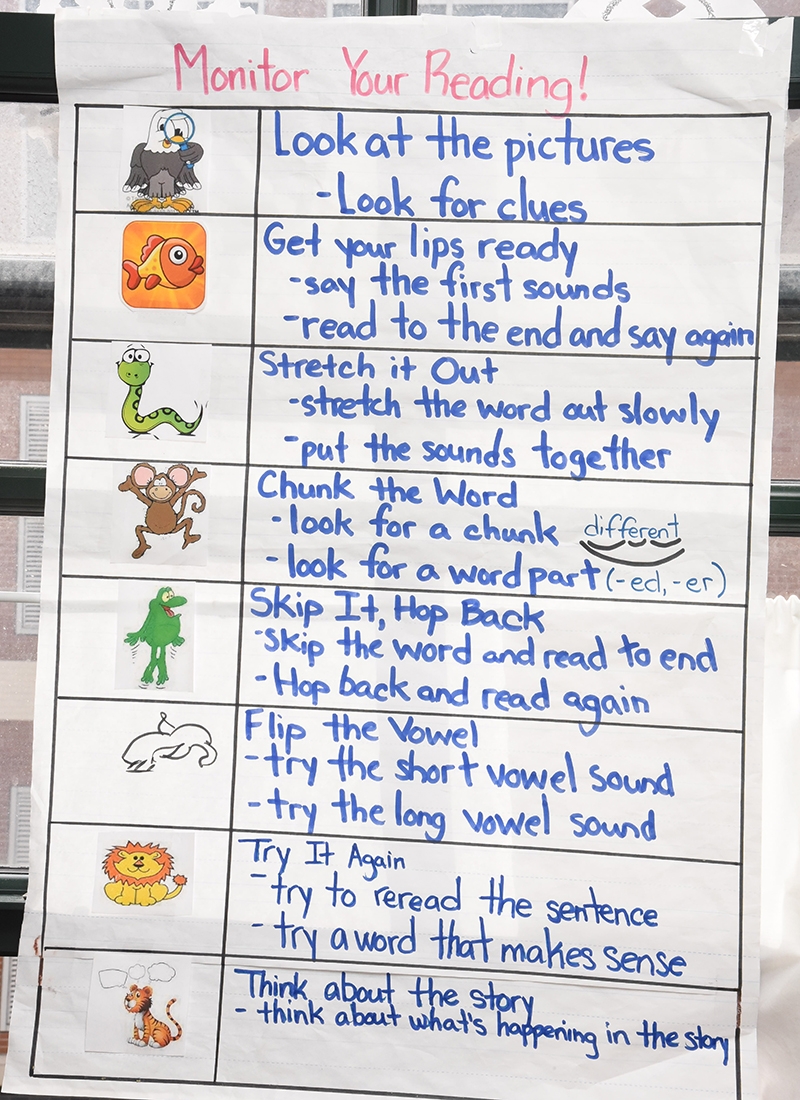 Monitor Your Reading!
Look at the pictures
-Look for clues
Get your lips ready
-say the first sounds
-read to the end and say again
Stretch it Out
-stretch the word out slowly
-put the sounds together
Chunk the Word
-look for a chunk different
-look for a word part (-ed, -er)
Skip It, Hop Back
-skip the word and read to end
-Hop back and read again
Flip the Vowel
-try the short vowel sound
-try the long vowel sound
Try It Again
-try to reread the sentence
-try a word that makes sense
Think about the story
-think about what's happening in the story